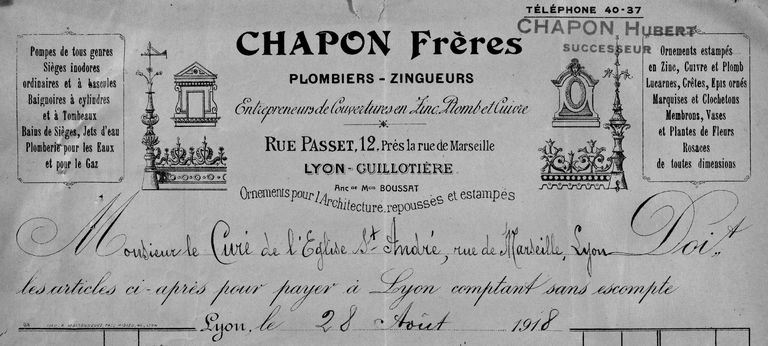 TÉLÉPHONE 40-37
CHAPON HUBERT
SUCCESSEUR
Pompes de tous genres
Sièges inodores
ordinaires et à bascules
Baignoires à cylindres
et à Tombeaux
Bains de Sièges, Jets d'eau
Plomberie pour les Eaux
et pour le Gaz
CHAPON Frères
PLOMBIERS - ZINGUEURS
Entrepreneurs de Couvertures en Zinc, Plomb et Cuivre
RUE PASSET, 12. Près la rue de Marseille
LYON-GUILLOTIÈRE.
ANC NE MON BOUSSAT
Ornements pour l'Architecture, repoussés et estampés
Ornements estampés
en Zinc, Cuivre et Plomb
Lucarnes, Crêtes, Epis ornés
Marquises et Clochetons
Membrons, Vases
et Plantes de Fleurs
Rosaces
de toutes dimensions
Monsieur le Curé de l'Eglise St André, rue de Marseille, Lyon Doit
les articles ci-après pour payer à Lyon comptant sans escompte
Lyon, le 28 Août 1918